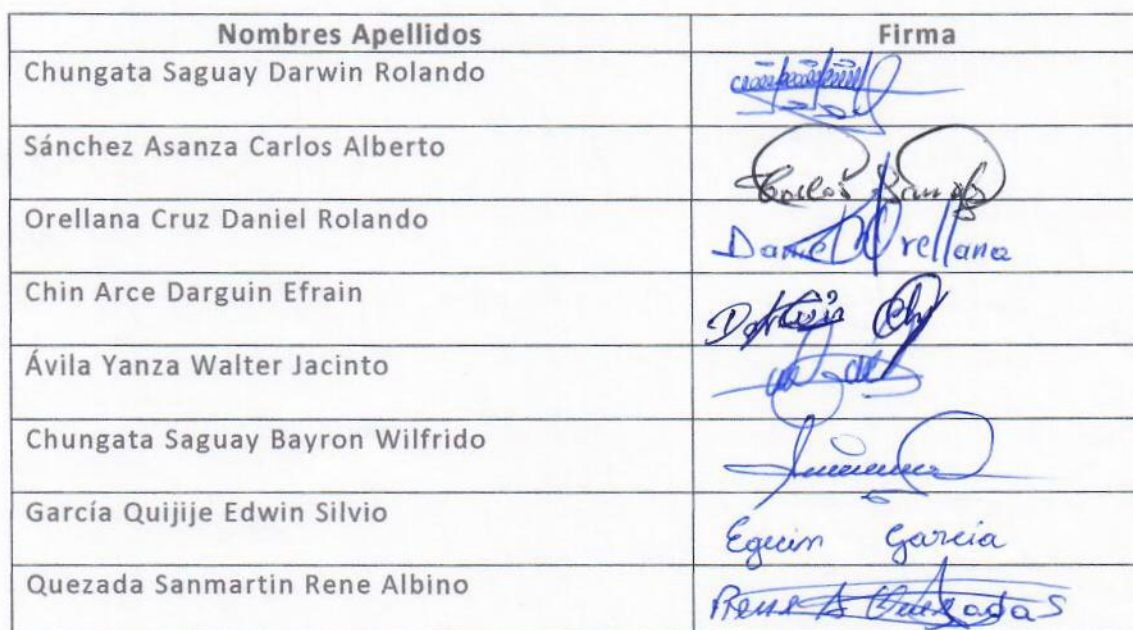 Nombres Apellidos Firma
Chungata Saguay Darwin Rolando
Sánchez Asanza Carlos Alberto
Carlos
Orellana Cruz Daniel Rolando
Daniel Orellana
Chin Arce Darguin Efrain
Ávila Yanza Walter Jacinto
Chungata Saguay Bayron Wilfrido
García Quijije Edwin Silvio
García
Quezada Sanmartin Rene Albino
Rene A Quezada S